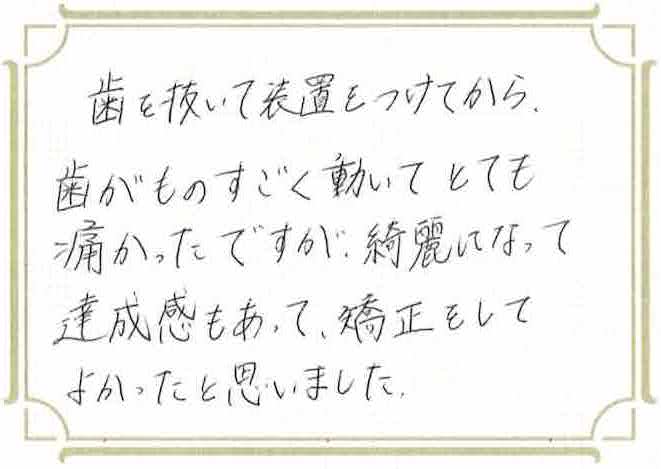 歯を抜いて装置をつけてから、
歯がものすごく動いてとても
痛かったですが、綺麗になって
達成感もあって、矯正をして
よかったと思いました。